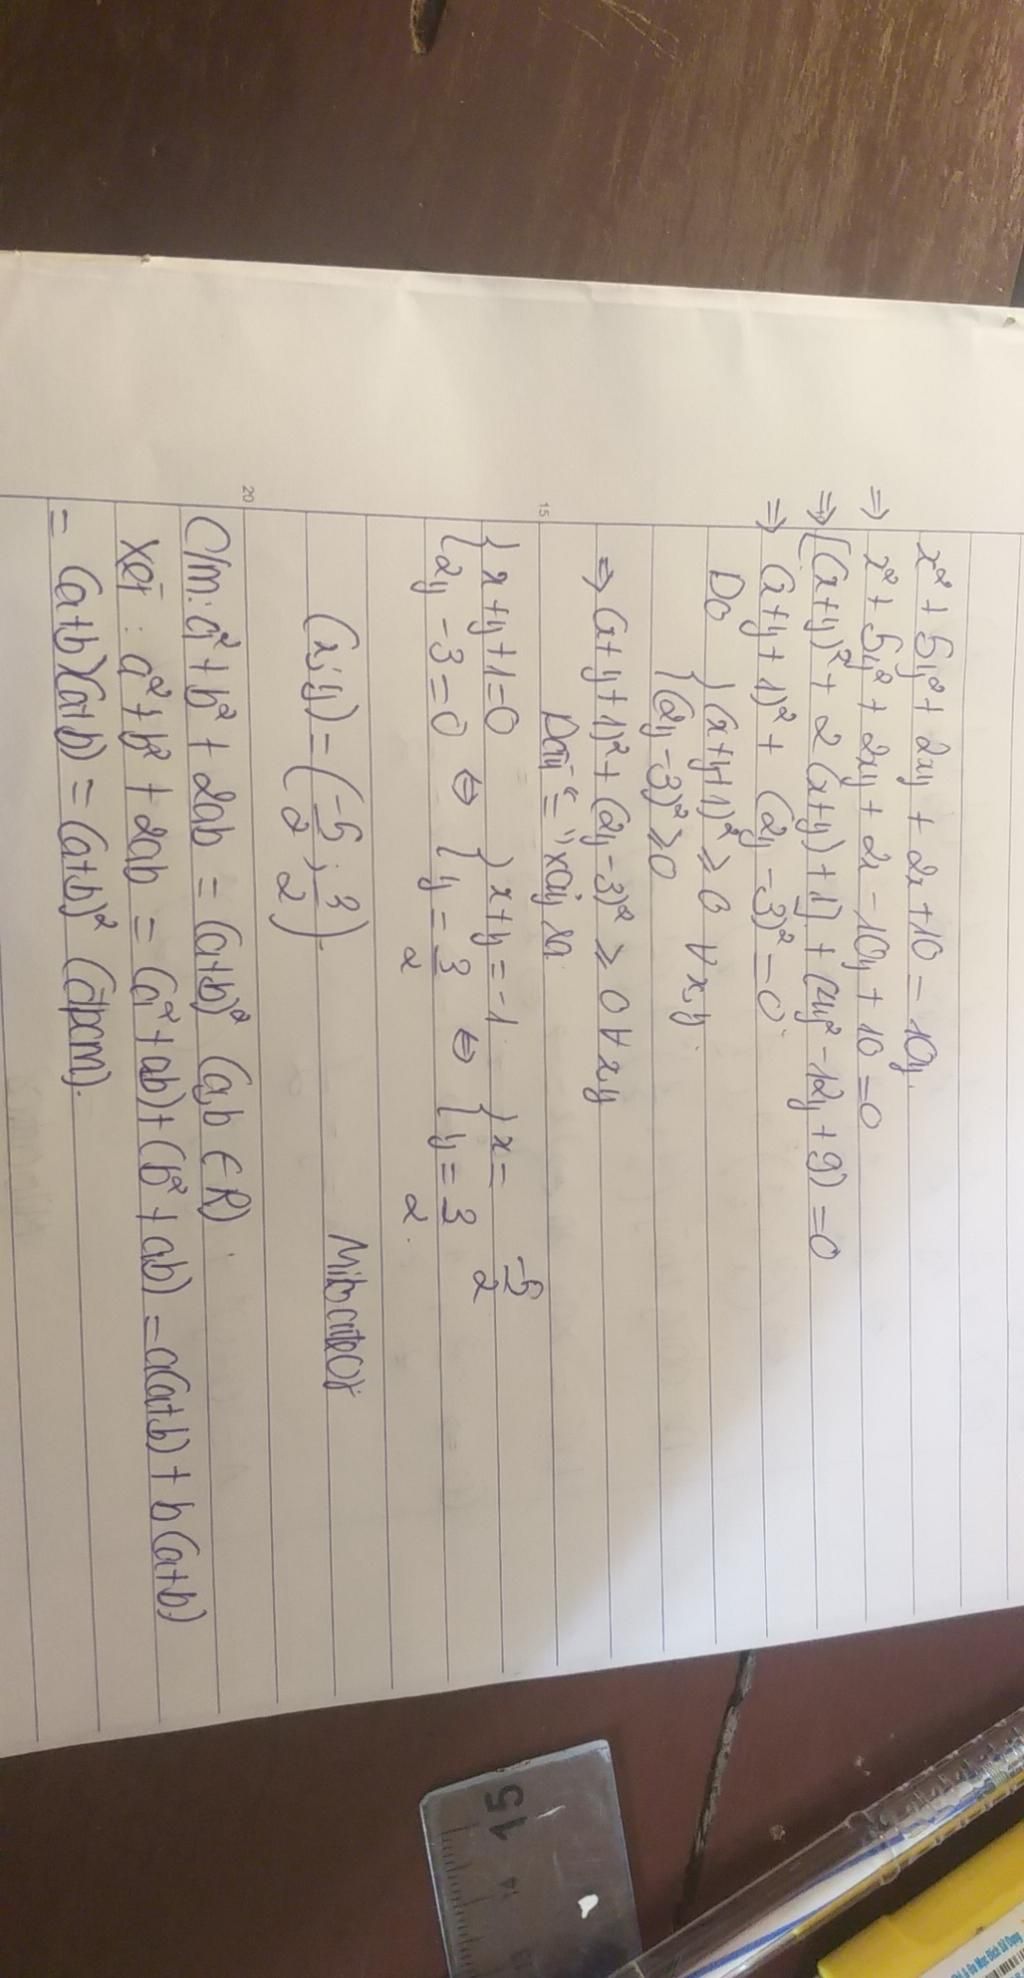 x² + 5y² + 2xy + 2x + 10 = 10y.
⇒ x² + 5y² + 2xy + 2x - 10y + 10 = 0
⇒ [(x+y)² + 2(x+y) + 1] + (4y² - 12y + 9) = 0
⇒ (x+y+1)² + (2y-3)² = 0.
Do { (x+y+1)² ≥ 0 ∀ x,y.
{ (2y-3)² ≥ 0
⇒ (x+y+1)² + (2y-3)² ≥ 0 ∀ x,y
15
Dấu "=" xảy ra.
{ x+y+1=0 ⇔ { x+y=-1 ⇔ { x = -5/2
{ 2y-3=0 { y = 3/2 { y = 3/2.
(x;y) = (-5/2; 3/2).
20
C/m: a² + b² + 2ab = (a+b)² (a,b ∈ R).
Xét: a² + b² + 2ab = (a² + ab) + (b² + ab) = a(a+b) + b(a+b)
= (a+b)(a+b) = (a+b)² (đpcm).
15
14
13